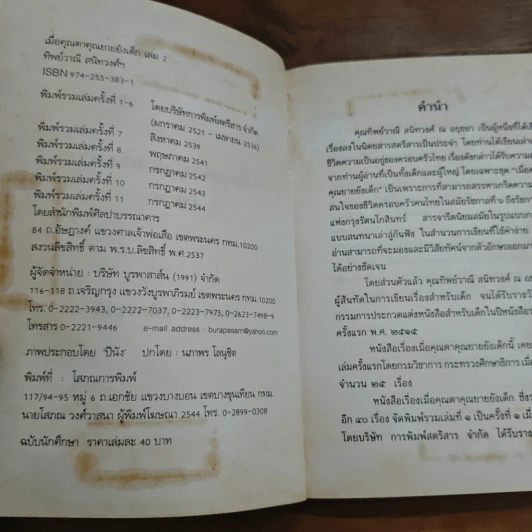 เมื่อคุณตาคุณยายยังเด็ก เล่ม 2
ทิพย์วาณี สนิทวงศ์ฯ
ISBN 974-255-383-1
พิมพ์รวมเล่มครั้งที่ 1-6 โดยบริษัทการพิมพ์สตรีสาร จำกัด
(มกราคม 2521 - เมษายน 2536)
พิมพ์รวมเล่มครั้งที่ 7 สิงหาคม 2539
พิมพ์รวมเล่มครั้งที่ 8 พฤษภาคม 2541
พิมพ์รวมเล่มครั้งที่ 9 กรกฎาคม 2542
พิมพ์รวมเล่มครั้งที่ 10 กรกฎาคม 2543
พิมพ์รวมเล่มครั้งที่ 11 กรกฎาคม 2544
โดยสำนักพิมพ์ศิลปาบรรณาคาร
84 ถ.อัษฎางค์ แขวงศาลเจ้าพ่อเสือ เขตพระนคร กทม.10200
สงวนลิขสิทธิ์ ตาม พ.ร.บ.ลิขสิทธิ์ พ.ศ.2537
ผู้จัดจำหน่าย : บริษัท บูรพาสาส์น (1991) จำกัด
116-118 ถ.เจริญกรุง แขวงวังบูรพาภิรมย์ เขตพระนคร กทม.10200
โทร. 0-2222-3943, 0-2222-7037, 0-2223-7975, 0-2623-7498-9
โทรสาร 0-2221-9446 e-mail address : burapasarn@yahoo.com
ภาพประกอบโดย 'ปีนัง' ปกโดย : นภาพร โลนุชิต
พิมพ์ที่ : โสภณการพิมพ์
117/94-95 หมู่ 6 ถ.เอกชัย แขวงบางบอน เขตบางขุนเทียน กทม.
นายโสภณ วงศ์วาสนา ผู้พิมพ์โฆษณา 2544 โทร. 0-2899-0308
ฉบับนักศึกษา ราคาเล่มละ 40 บาท
คำนำ
คุณทิพย์วาณี สนิทวงศ์ ณ อยุธยา เป็นผู้หนึ่งที่ได้
เรื่องลงในนิตยสารสตรีสารเป็นประจำ โดยท่านได้เขียนเล่า
ชีวิตความเป็นอยู่ของครอบครัวไทย เรื่องดังกล่าวได้รับความ
จากท่านผู้อ่านที่เป็นทั้งเด็กและผู้ใหญ่ โดยเฉพาะชุด "เมื่อ
คุณยายยังเด็ก" เป็นเพราะการที่สามารถสรรหาเกร็ดความ
สนใจของชีวิตครอบครัวคนไทยในสมัยรัชกาลที่ ๖ ถึงรัช
แห่งกรุงรัตนโกสินทร์ สารจารีตนิยมสมัยในรูปแบบ
แบบสนทนาเล่าสู่กันฟัง ในสำนวนการเขียนที่ใช้คำง่าย
อ่านสามารถที่จะมองและมีวิสัยทัศน์จากตัวอักษรออกมา
ได้อย่างชัดเจน
โดยส่วนตัวแล้ว คุณทิพย์วาณี สนิทวงศ์ ณ
ผู้สันทัดในการเขียนเรื่องสำหรับเด็ก จนได้รับราง
กรรมการประกวดแต่งหนังสือสำหรับเด็กในปีหนังสือ
ครั้งแรก พ.ศ. ๒๕๑๕
หนังสือเรื่องเมื่อคุณตาคุณยายยังเด็กนี้ เคย
เล่มครั้งแรกโดยกรมวิชาการ กระทรวงศึกษาธิการ เมื่อ
จำนวน ๒๕ เรื่อง
หนังสือเรื่องเมื่อคุณตาคุณยายยังเด็ก ซึ่ง
อีก ๔๐ เรื่อง จัดพิมพ์รวมเล่มที่ ๑ เป็นครั้งที่ ๑ เมื่อ
โดยบริษัท การพิมพ์สตรีสาร จำกัด ได้รับราง